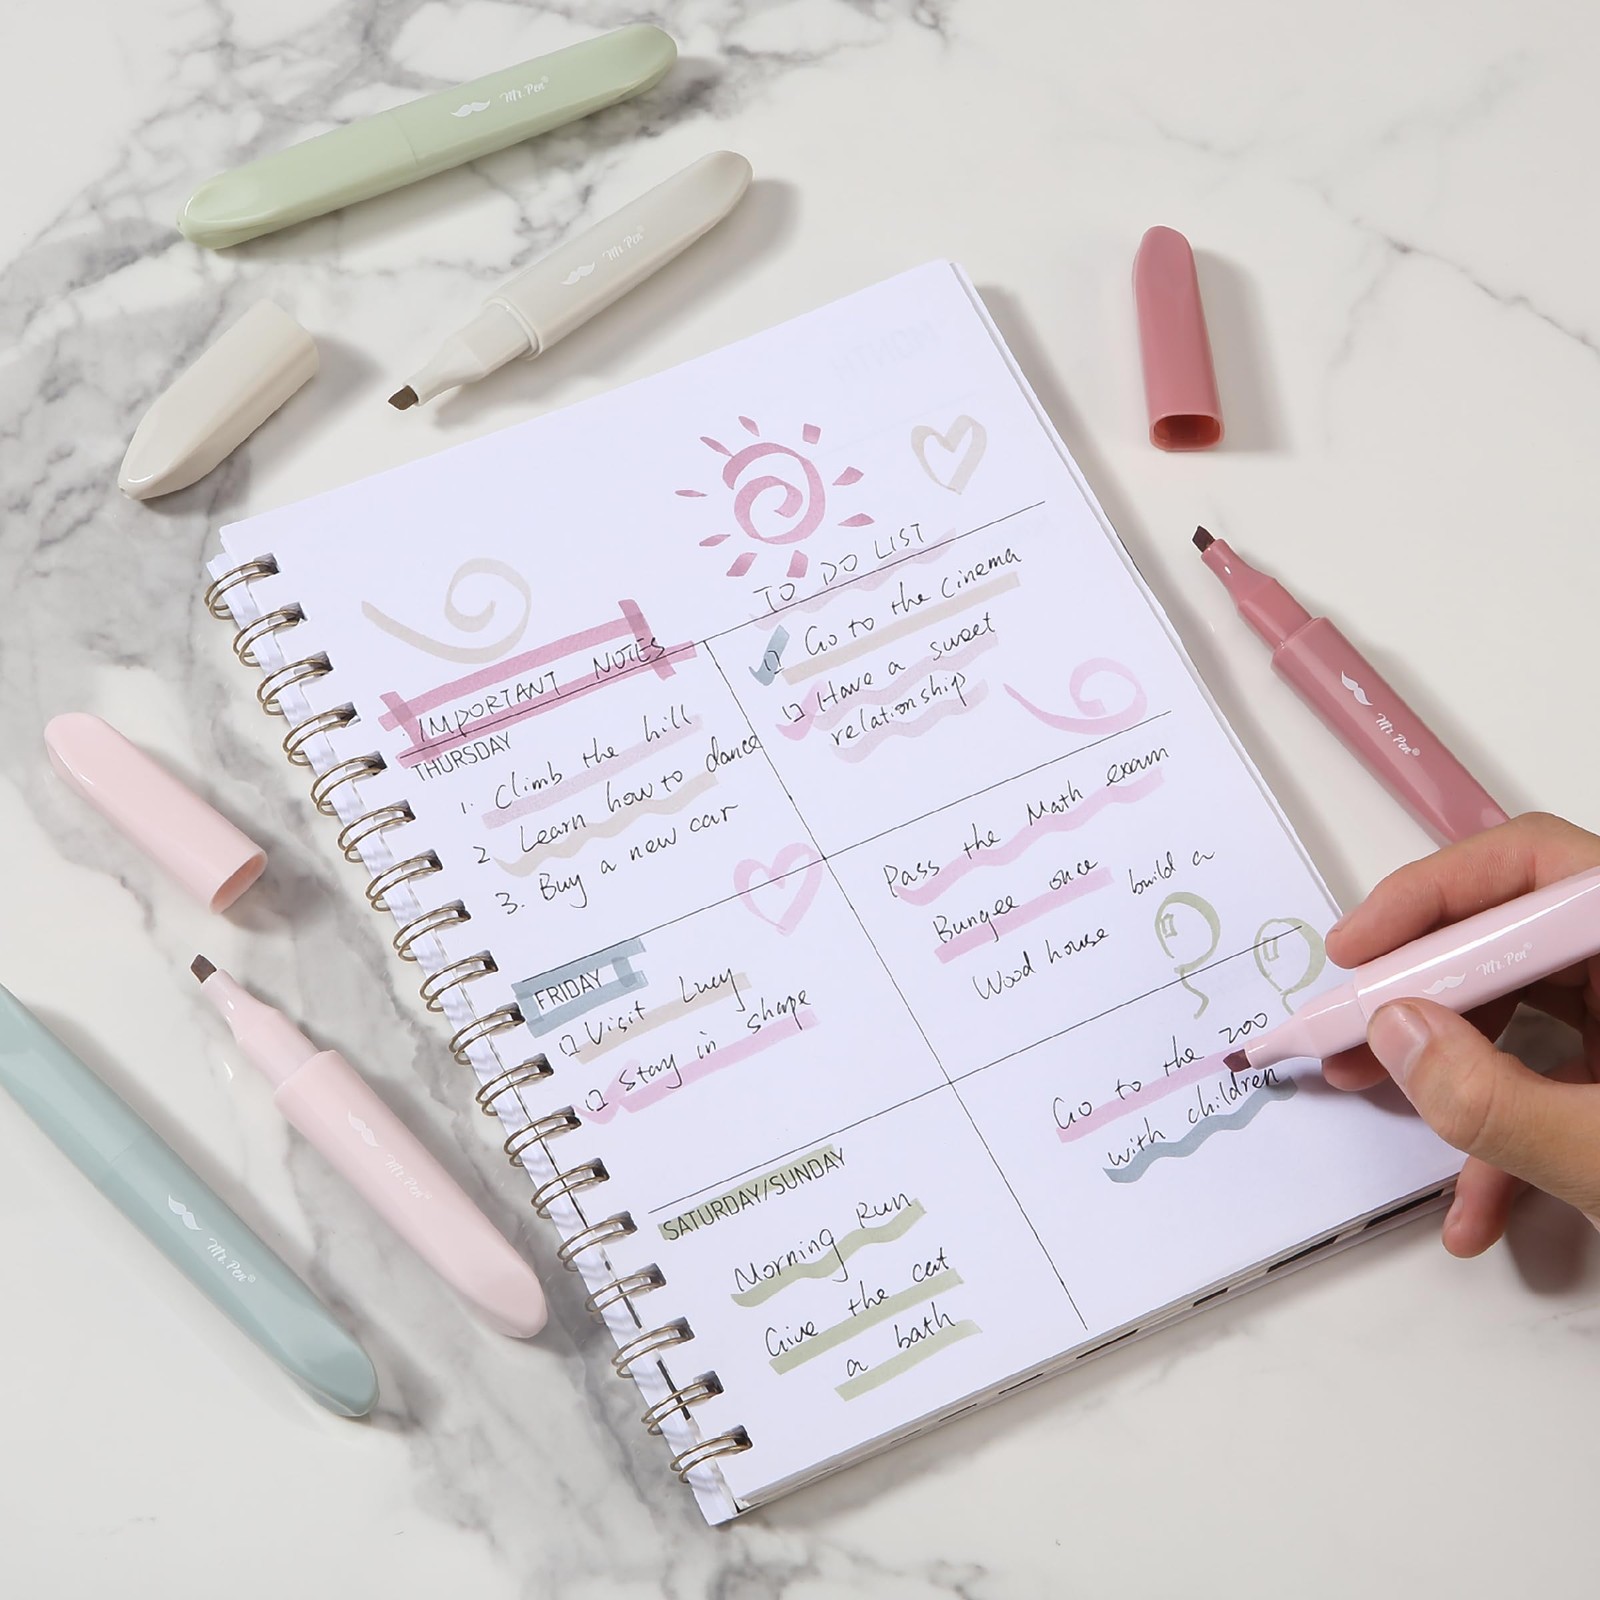 Mr.Pen®
Mr.Pen
TO DO LIST
Go to the cinema
Have a sweet
relationship
IMPORTANT NOTES
THURSDAY
1. Climb the hill
2 Learn how to dance
3. Buy a new car
Pass the Math exam
Bungee once
build a
Wood house
FRIDAY
Visit Lucy
Stay in shape
Go to the zoo
with children
SATURDAY/SUNDAY
Morning Run
Give the cat
a bath
Mr.Pen®
Mr.Pen®
Mr.Pen®
Mr.Pen®